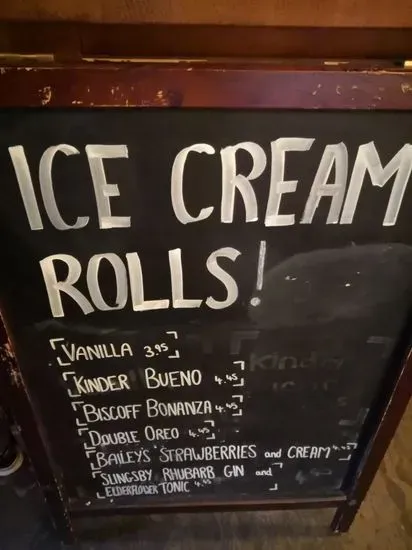 ICE CREAM
ROLLS!
VANILLA 3.95
KINDER BUENO 4.45
BISCOFF BONANZA 4.45
DOUBLE OREO 4.45
BAILEY'S STRAWBERRIES and CREAM 4.45
SLINGSBY RHUBARB GIN and
ELDERFLOWER TONIC 4.45
Kinder